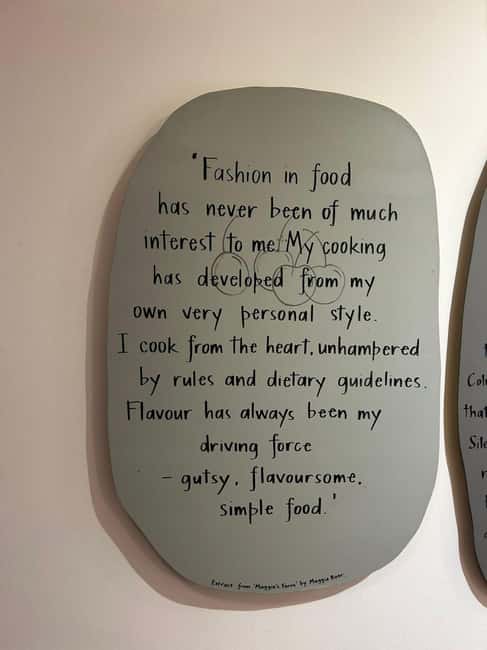 'Fashion in food
has never been of much
interest to me. My cooking
has developed from my
own very personal style.
I cook from the heart, unhampered
by rules and dietary guidelines.
Flavour has always been my
driving force
– gutsy, flavoursome,
simple food.'
Extract from 'Maggie's Farm' by Maggie Beer.
Col
that
Sil